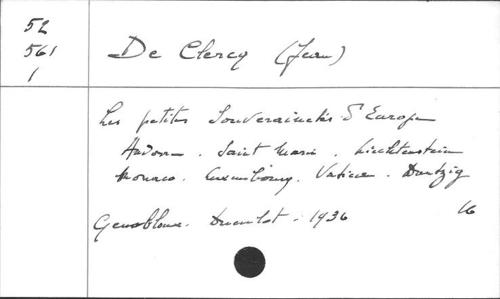 52
561
1
De Clercq (Jean)
Les petites Souverainetés d'Europe
Andorre. Saint Marin. Liechtenstein
Monaco. Luxembourg. Vatican. Dantzig
Gembloux. Duculot. 1936 16